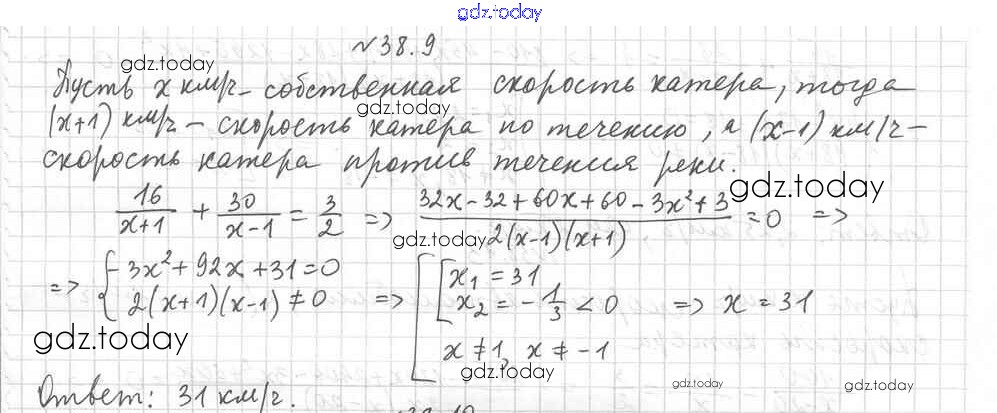 gdz.today
№38.9
gdz.today
Пусть x км/ч – собственная скорость катера, тогда
gdz.today
(x+1) км/ч – скорость катера по течению, а (x-1) км/ч –
скорость катера против течения реки.
gdz.today
16/(x+1) + 30/(x-1) = 3/2 => (32x-32+60x+60-3x²+3)/(2(x-1)(x+1)) = 0 =>
gdz.today
=> { -3x²+92x+31=0 => [ [ x₁ = 31
2(x+1)(x-1) ≠ 0 x₂ = -1/3 < 0 => x = 31
gdz.today
x ≠ 1, x ≠ -1
gdz.today
gdz.today
gdz.today
Ответ: 31 км/ч.